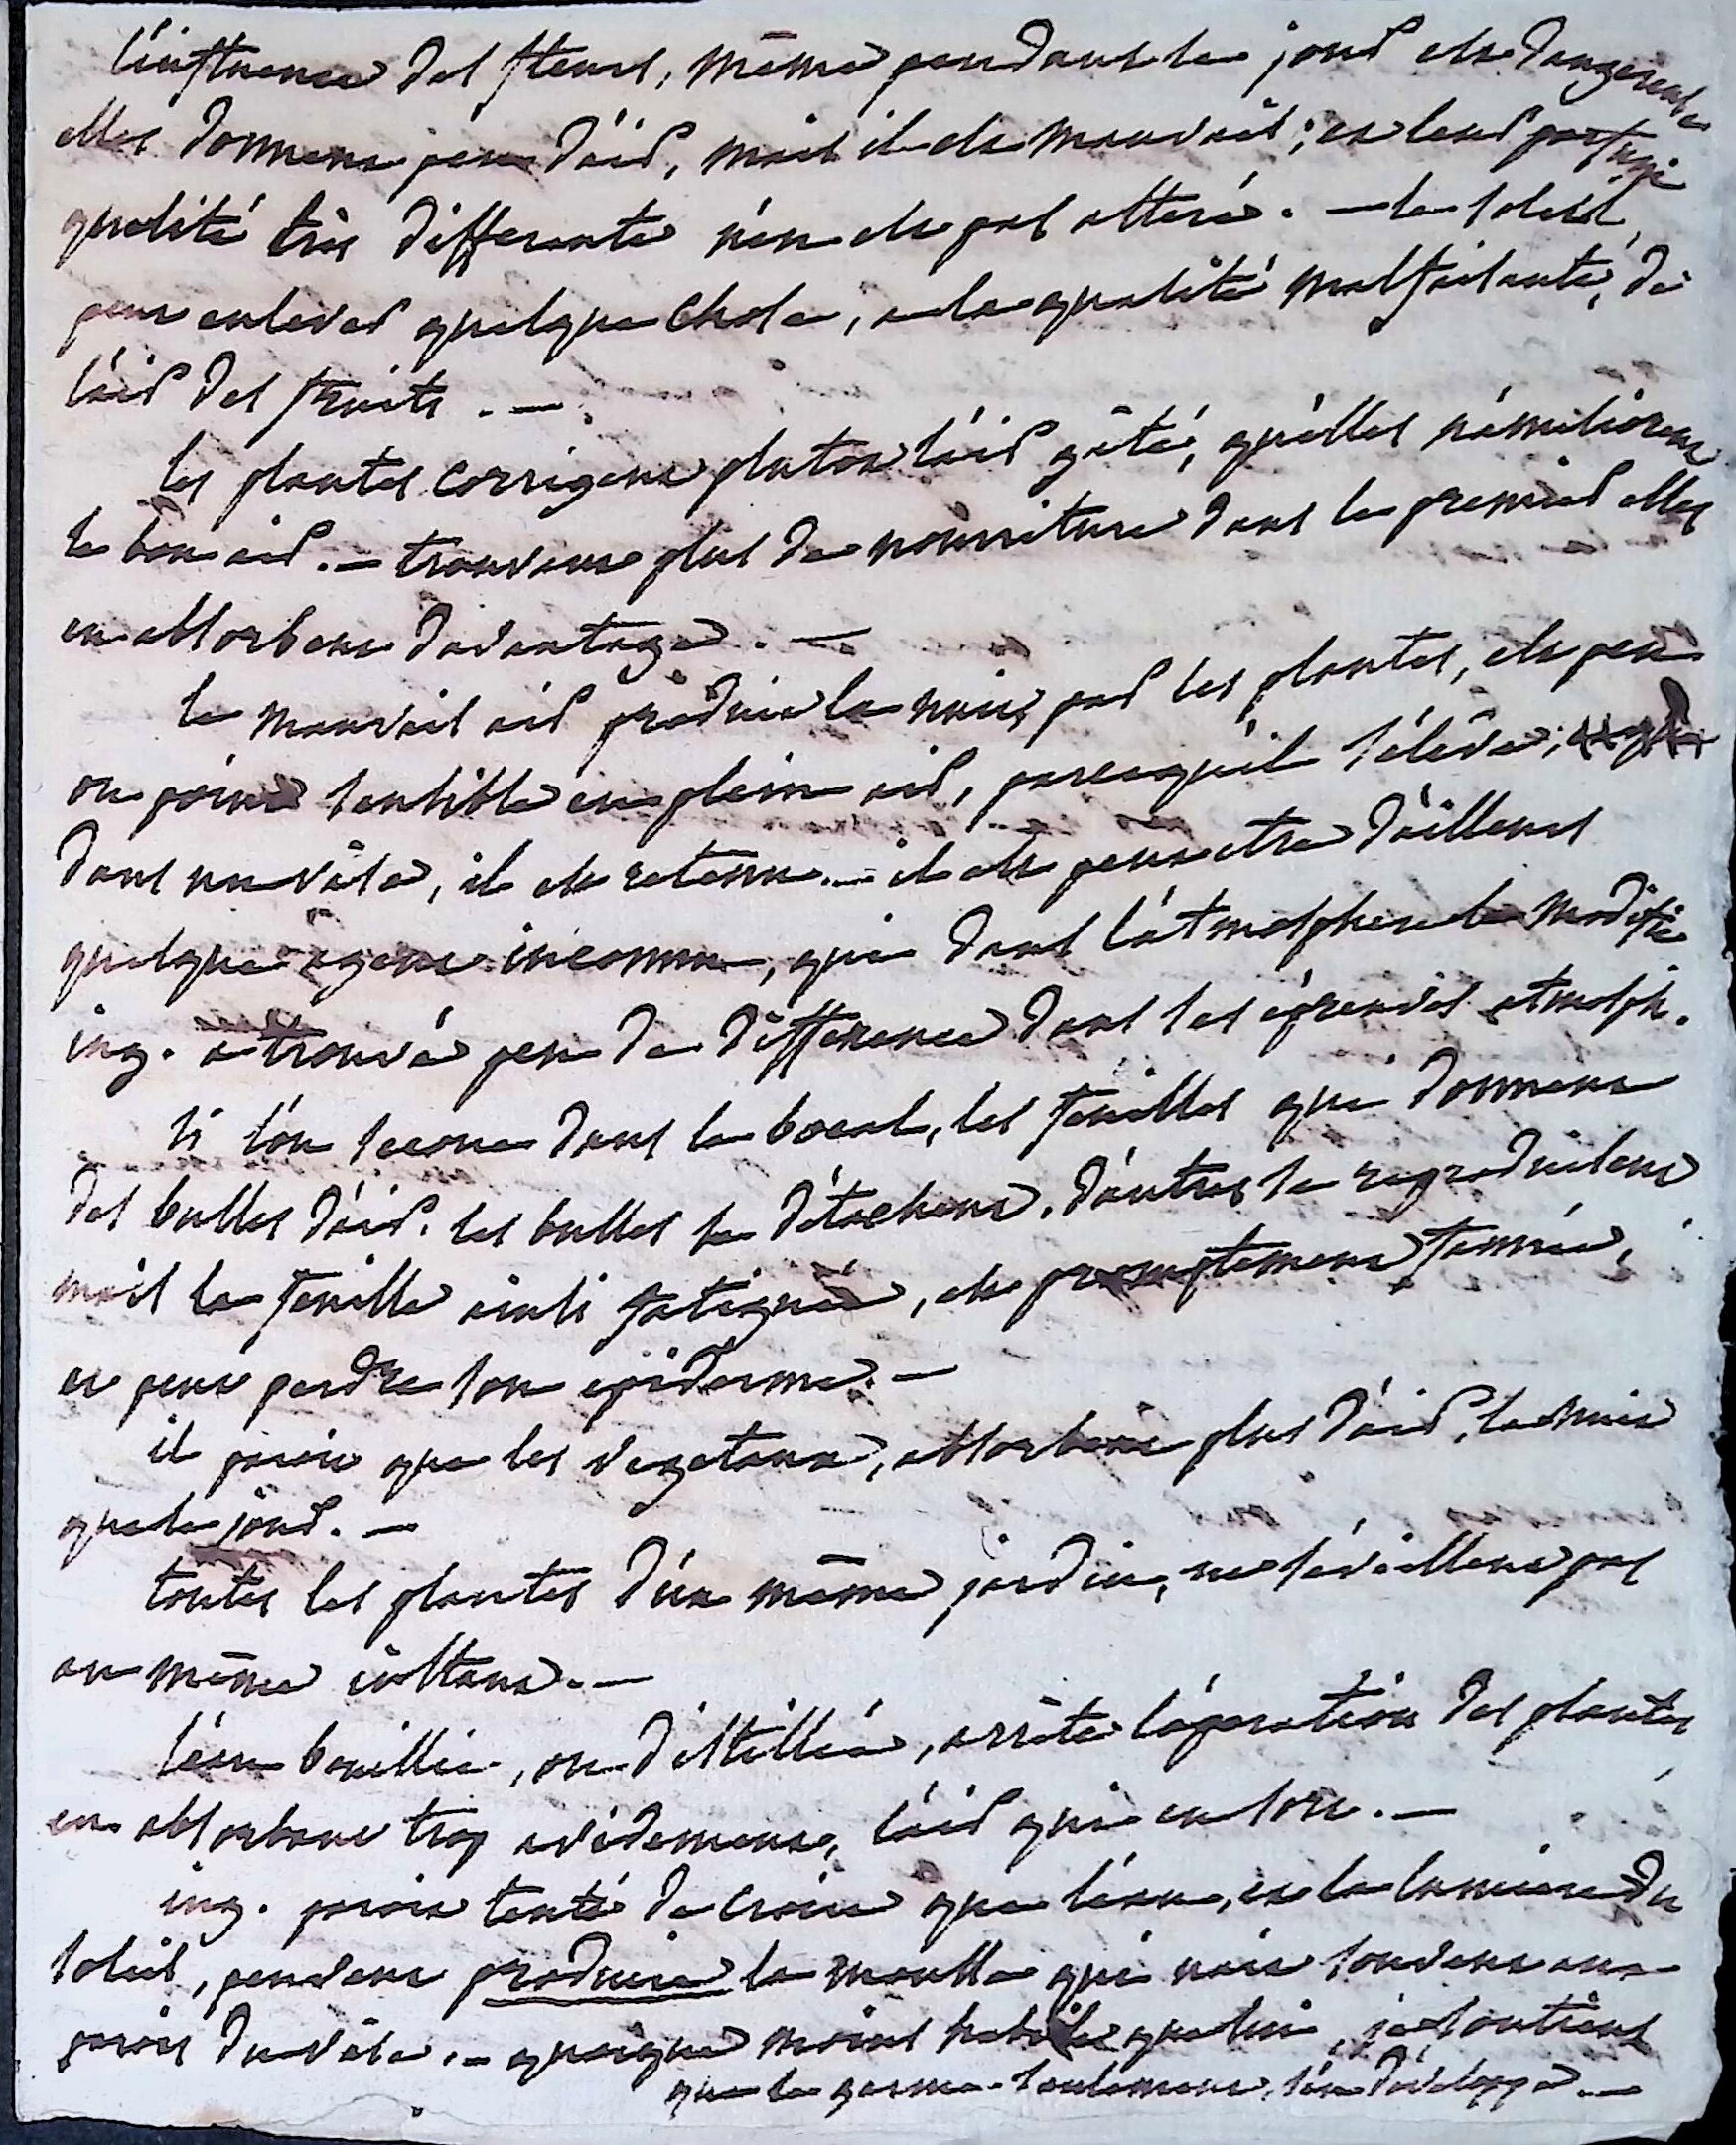 l'influence des fleurs, même pendant le jour est dangereuse
elles donnent peu d'air, mais il est mauvais; et leur parfum
qualité très differente n'en est pas altéré. — le soleil,
peut enlever quelque chose, a la qualité malfaisante, de
l'air des fruits. —
les plantes corrigent plutot l'air gâté, qu'elles n'améliorent
le bon air. — trouvant plus de nourriture dans le premier elles
en absorbent davantage. —
le mauvais air produit la nuit par les plantes, est peu
ou point sensible en plein air, parcequ'il s'élève;
dans un vase, il est retenu. — il est peut etre d'ailleurs
quelque agent inconnu, qui dans l'atmosphere le modifie
ing. a trouvé peu de difference dans ses épreuves atmosph.
si l'on secoue dans le bocal, les feuilles qui donnent
des bulles d'air. les bulles se détachent. d'autres se reproduisent
mais la feuille ainsi fatiguée, est promptement fannée,
et peut perdre son epiderme. —
il paroit que les vegetaux, absorbent plus d'air, la nuit
que le jour. —
toutes les plantes d'un même jardin, ne s'éveillent pas
au même instant. —
l'eau bouillie, ou distillée, arrête l'operation des plantes
en absorbant trop avidement, l'air qui en sort. —
ing. paroit tenté de croire que l'eau, et la lumiere du
soleil, peuvent produire la mousse qui nait souvent aux
parois du vase. — quoique moins habile que lui, je soutiens
que le germe seulement, s'en développe. —